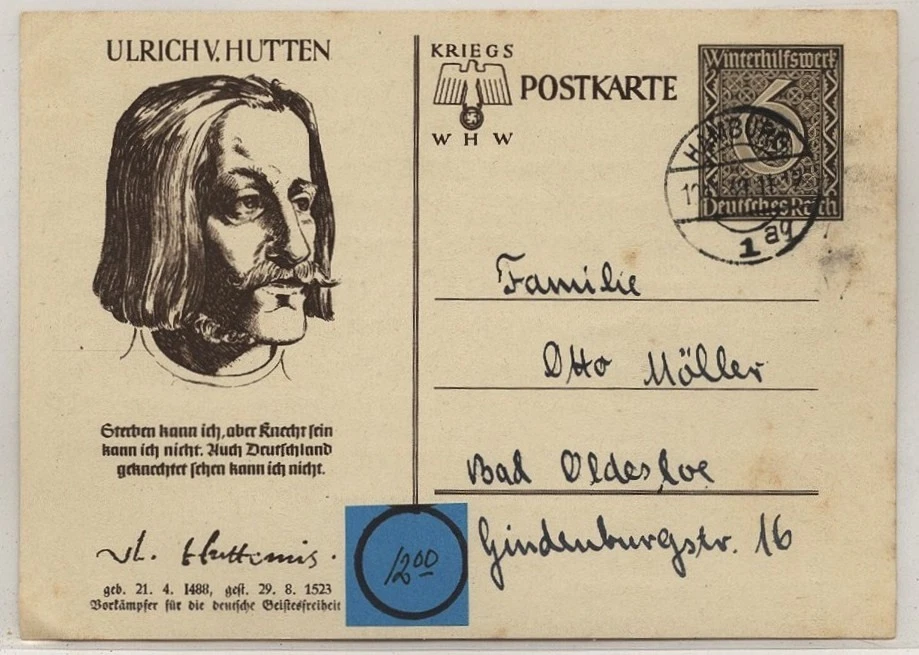 ULRICH V. HUTTEN
Sterben kann ich, aber Knecht sein
kann ich nicht. Auch Deutschland
geknechtet sehen kann ich nicht.
geb. 21. 4. 1488, gest. 29. 8. 1523
Vorkämpfer für die deutsche Geistesfreiheit
12.00
KRIEGS
WHW
POSTKARTE
Winterhilfswerk
6
Deutsches Reich
HAMBURG
1 ag
Familie
Otto Möller
Bad Oldesloe
Hindenburgstr. 16